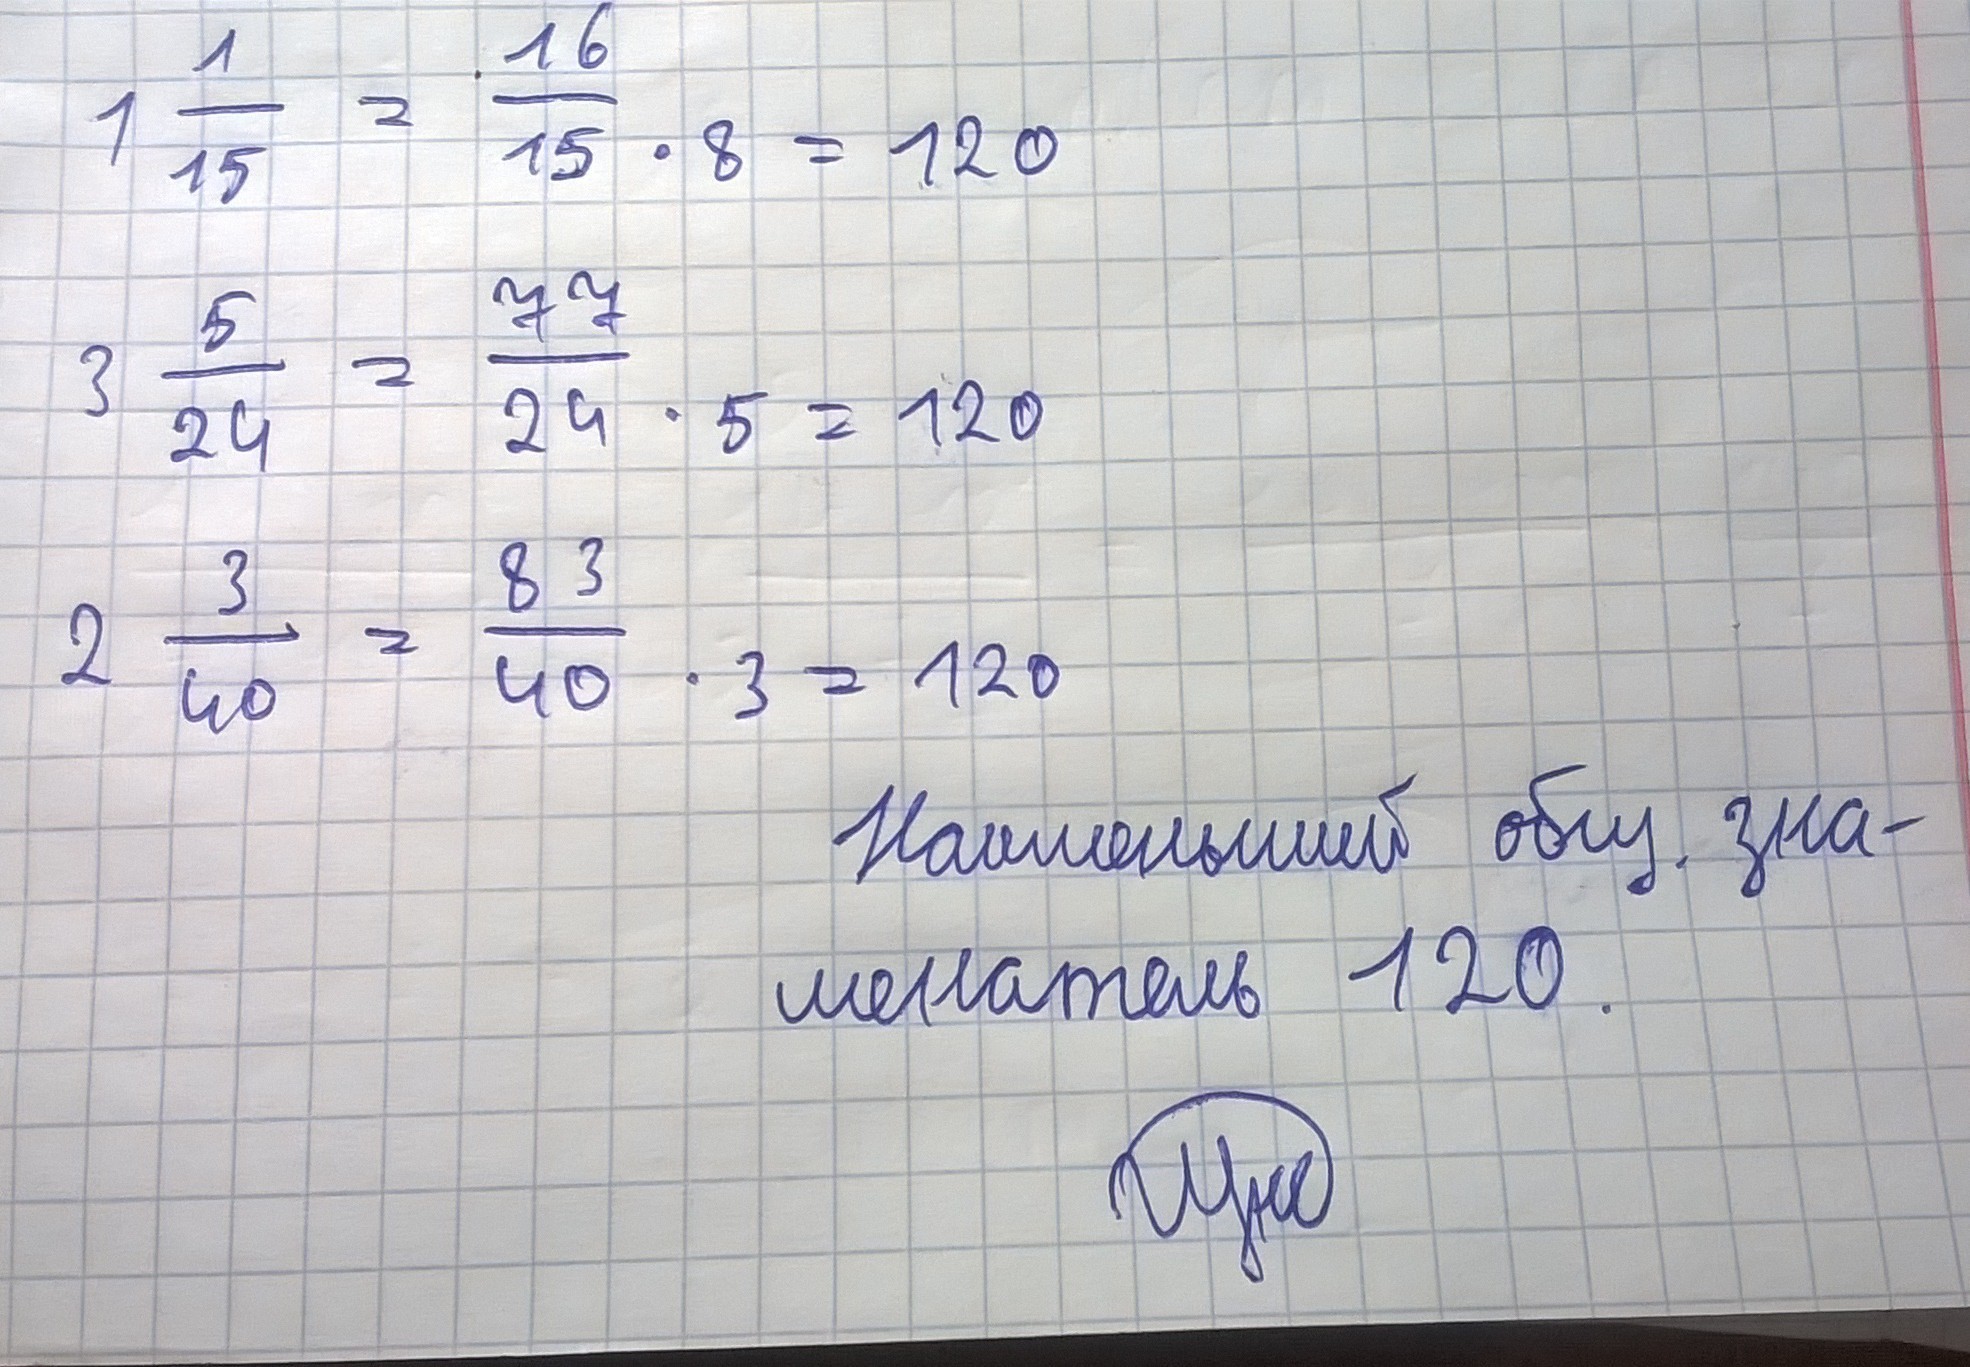 1 1/15 = 16/15 · 8 = 120
3 5/24 = 77/24 · 5 = 120
2 3/40 = 83/40 · 3 = 120
Наименьший общ. зна-
менатель 120.